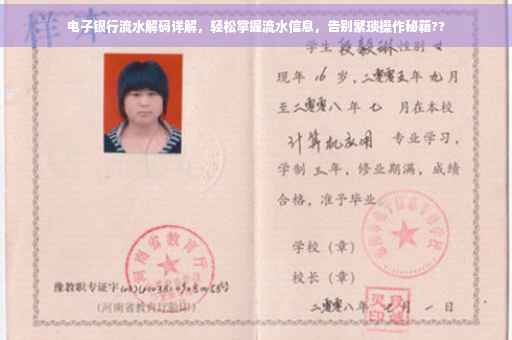 电子银行流水解码详解，轻松掌握流水信息，告别繁琐操作秘籍??
样本
学生段毅琳性别女
现年16岁，二零零五年九月
至二零零八年七 月在本校
计算机应用 专业学习，
学制三年，修业期满，成绩
合格，准予毕业
学校（章）
校长（章）
二零零八年七月一日
河南省教育厅
豫教职专证字
(河南省教育厅监印)